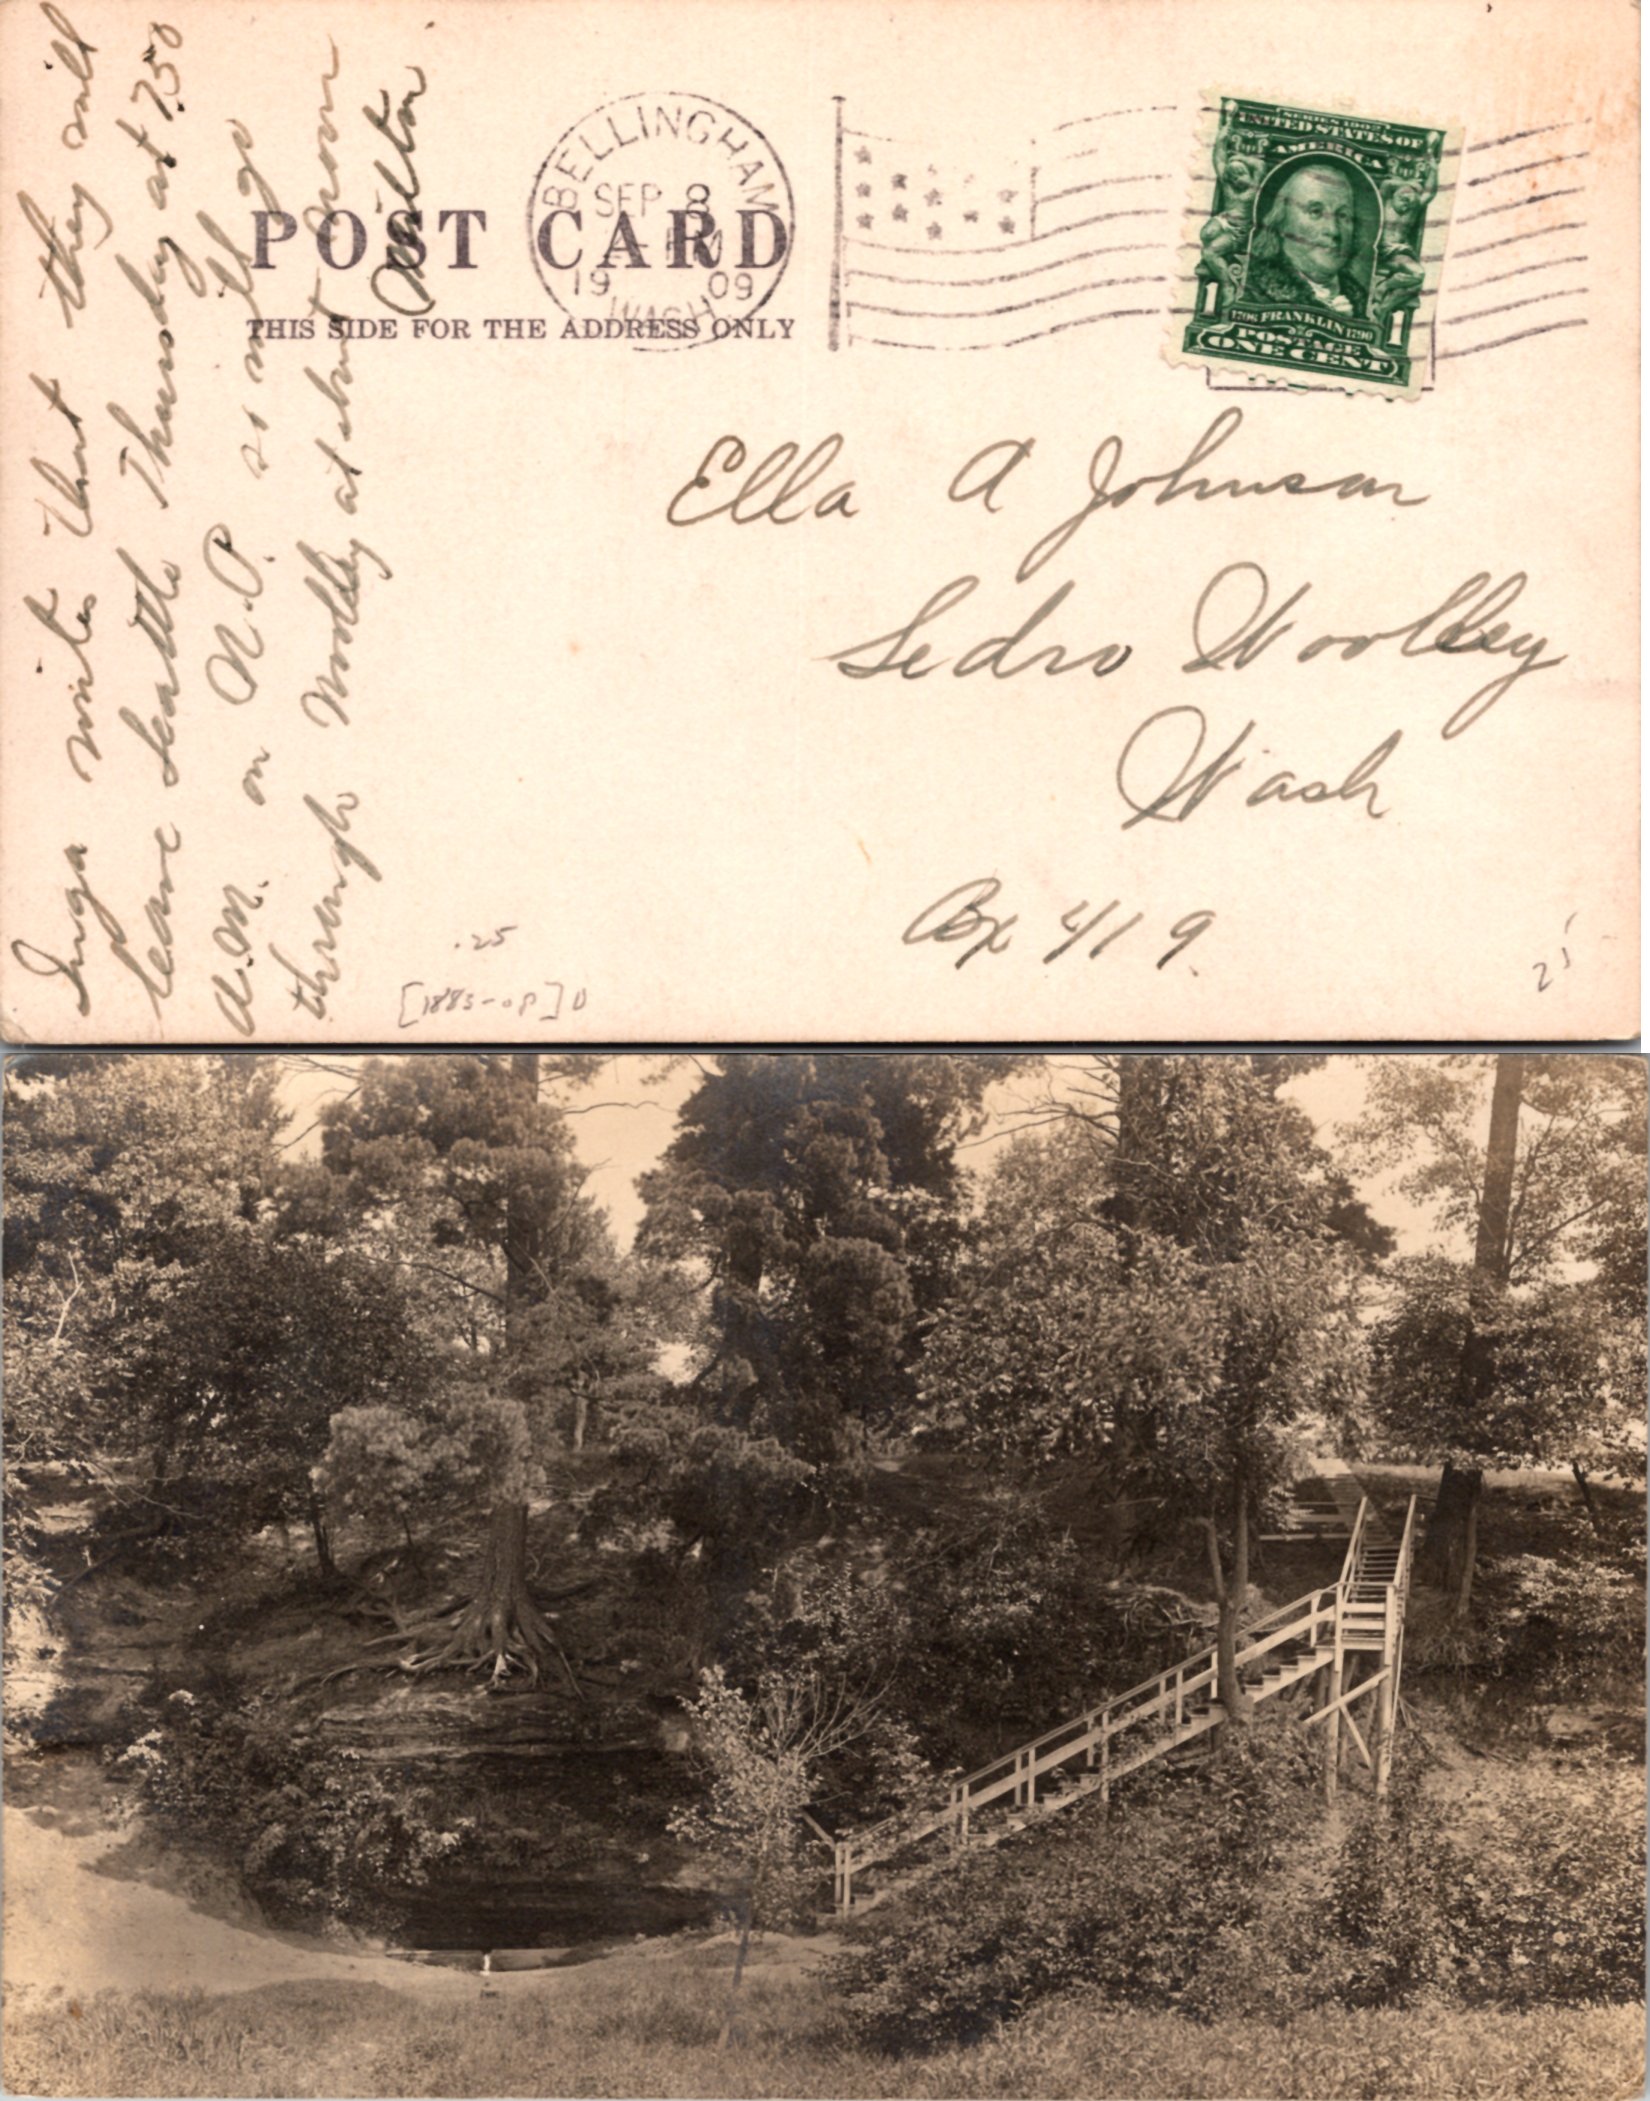 Inga writes that they will
leave Seattle Thursday at 7.50
A.M. on N.P. so will go
through Woolley at about noon
Milton
POST CARD
THIS SIDE FOR THE ADDRESS ONLY
BELLINGHAM
SEP 8
PM
19 09
WASH.
SERIES 1902
UNITED STATES OF
AMERICA
1 1
1706 FRANKLIN 1790
POSTAGE
ONE CENT
Ella A Johnson
Sedro Woolley
Wash
Bx 419.
.25
25